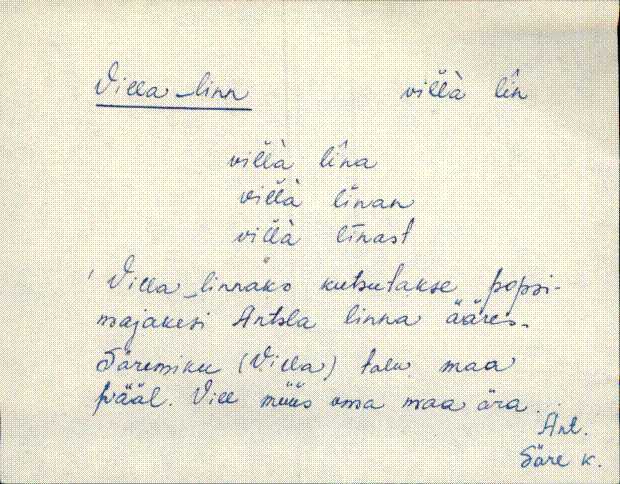 Villa-linn villà lin
villà lina
villà linan
villà linast
Villa-linnaks kutsutakse popsi-
majakesi Antsla linna ääres.
Säremiku (Villa) talu maa
pääl. Vill müüs oma maa ära.
Ant.
Säre k.